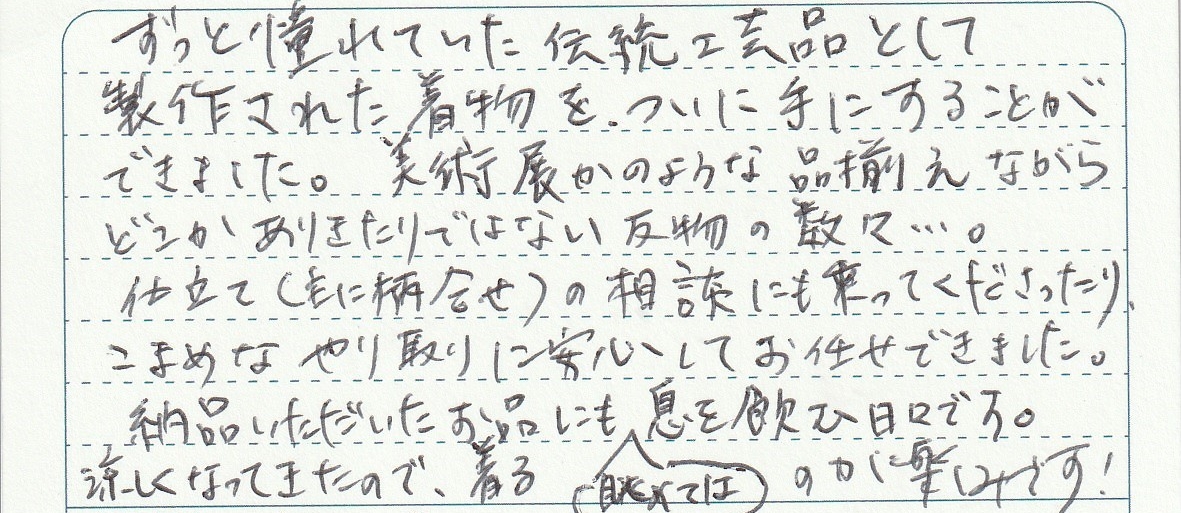 ずっと憧れていた伝統工芸品として
製作された着物を、ついに手にすることが
できました。美術展かのような品揃えながら
どこかありきたりではない反物の数々…。
仕立て(主に柄合せ)の相談にも乗ってくださったり、
こまめなやり取りに安心してお任せできました。
納品いただいたお品にも眺めては息を飲む日々です。
涼しくなってきたので、着るのが楽しみです!